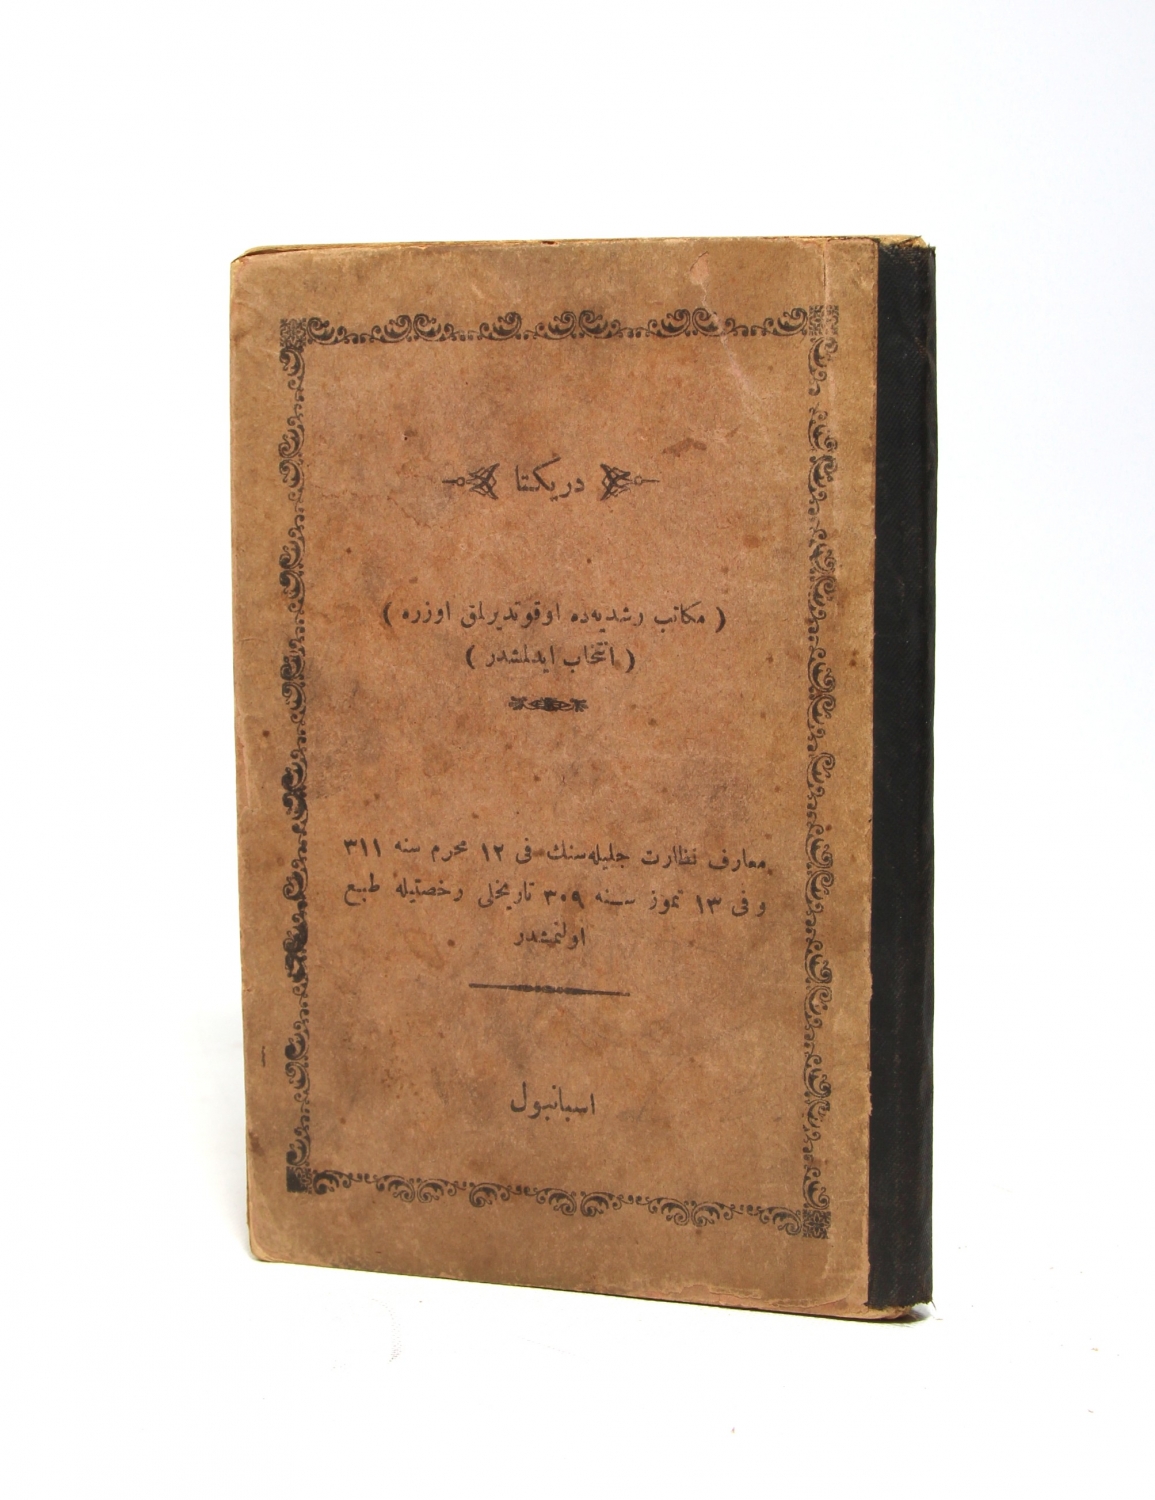 در یکتا
( مکاتب رشدیه‌ده اوقوتدیرلمق اوزره )
( انتخاب ایدلمشدر )
معارف نظارت جلیله‌سنك فی ١٢ محرم سنه ٣١١
و فی ١٣ تموز سنه ٣٠٩ تاریخلی رخصتیله طبع
اولنمشدر
استانبول